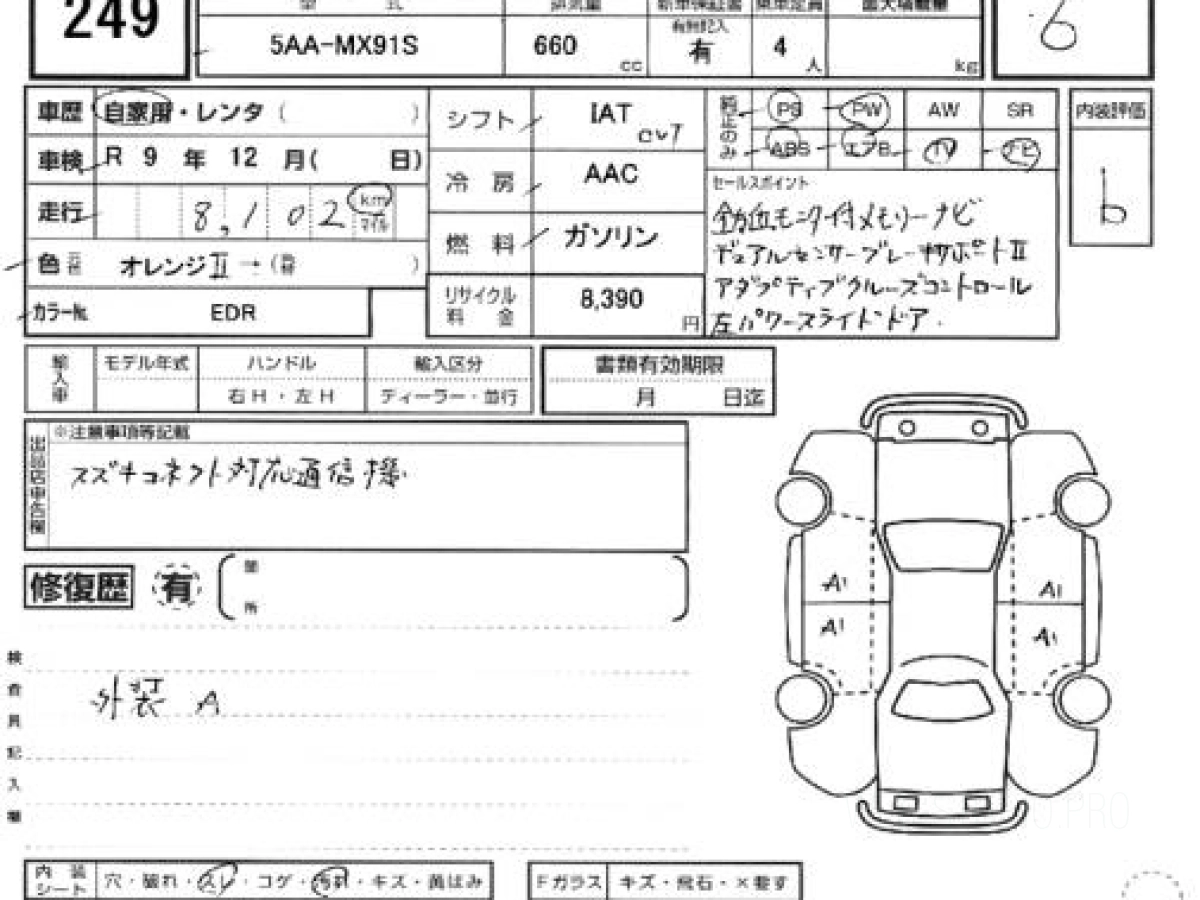 249
型 式 排気量 新車保証書 乗車定員 最大積載量
5AA-MX91S 660 cc 有無記入 有 4 人 kg
6
車歴 自家用・レンタ ( )
車検 R 9 年 12 月( 日)
走行 8,102 km マイル
色 元色 オレンジⅡ → ( )
カラー№ EDR
シフト IAT CVT
冷 房 AAC
燃 料 ガソリン
リサイクル料 金 8,390 円
純正のみ PS PW AW SR
ABS エアB TV ナビ
セールスポイント
全方位モニタ付メモリーナビ
デュアルセンサーブレーキサポートⅡ
アダプティブクルーズコントロール
左パワースライドドア.
内装評価
b
輸入車 モデル年式 ハンドル 輸入区分 書類有効期限
右H・左H ディーラー・並行 月 日迄
出品店申告欄 ※注意事項等記載
スズキコネクト対応通信機.
修復歴 有 箇所
A1 A1
A1 A1
検査員記入欄
外装 A
内 装 シート 穴・破れ・スレ・コゲ・汚れ・キズ・黄ばみ
Fガラス キズ・飛石・×要す
9.PRO